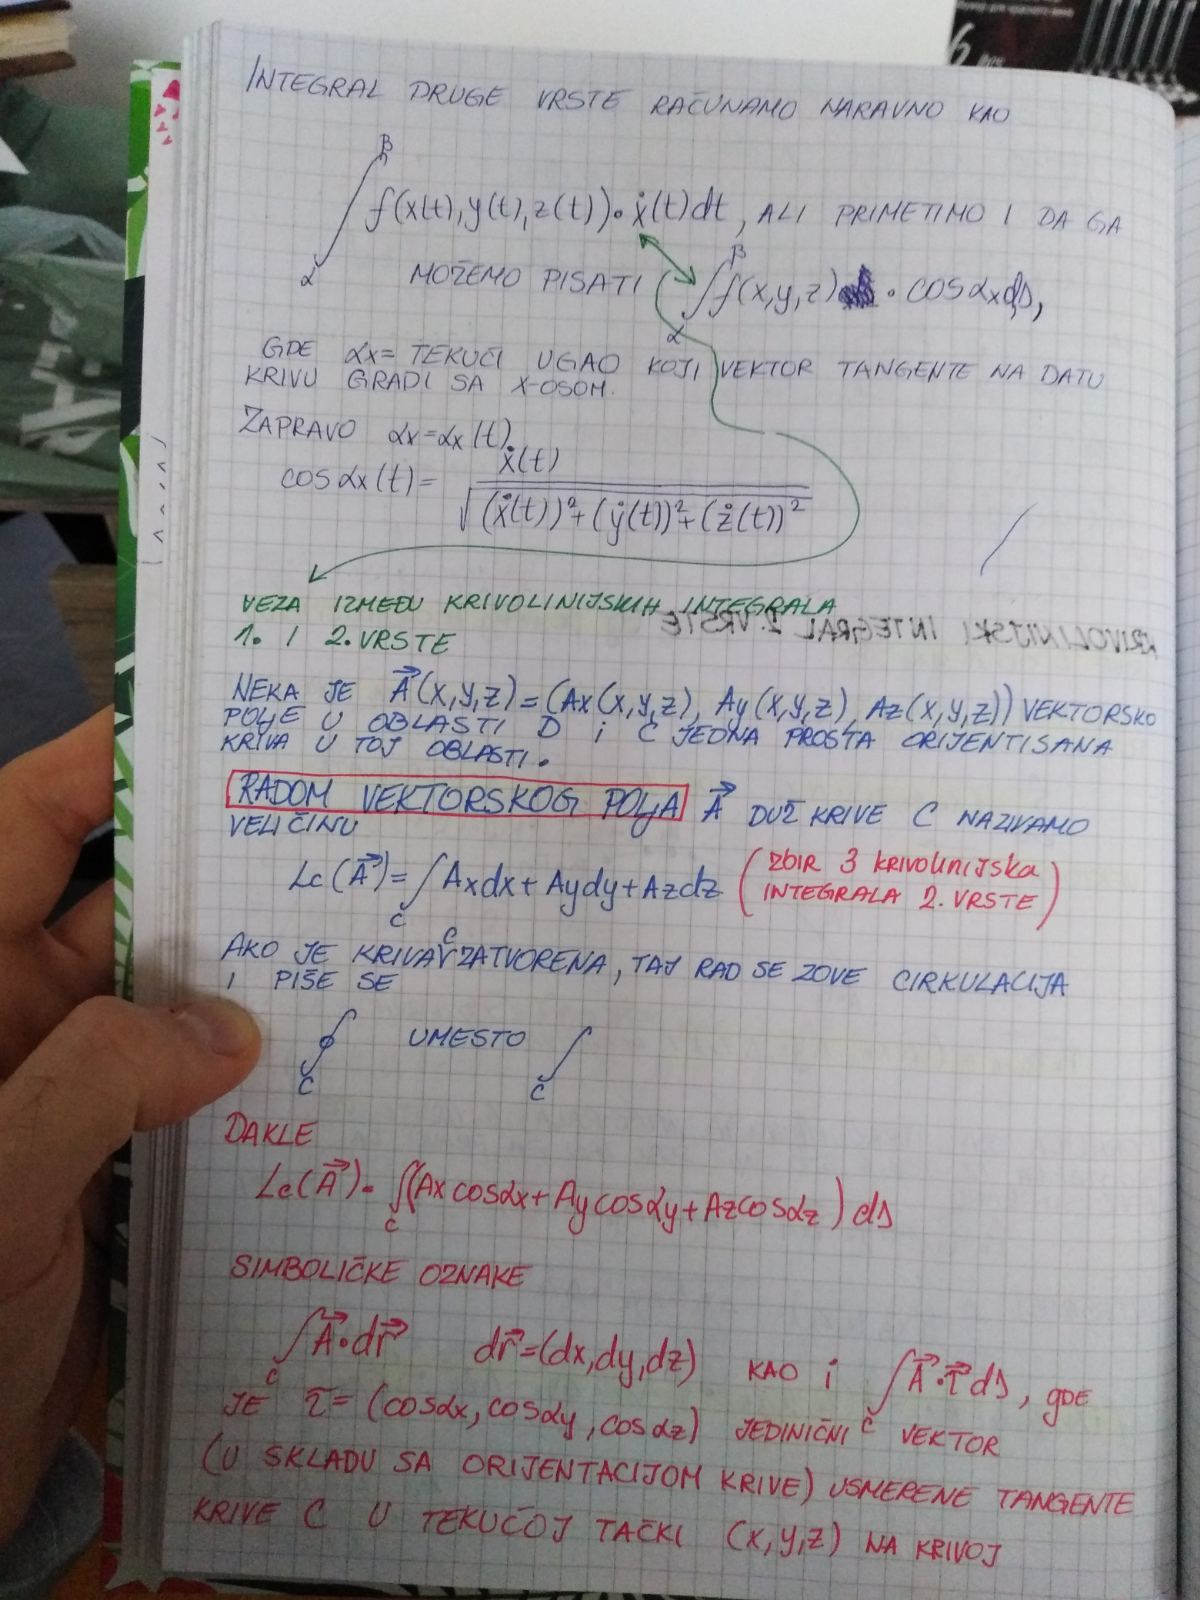 INTEGRAL DRUGE VRSTE RAČUNAMO NARAVNO KAO
∫_α^β f(x(t), y(t), z(t)) • ẋ(t)dt, ALI PRIMETIMO I DA GA
MOŽEMO PISATI ∫_α^β f(x,y,z) • cosαx ds,
GDE αx = TEKUĆI UGAO KOJI VEKTOR TANGENTE NA DATU
KRIVU GRADI SA X-OSOM.
ZAPRAVO αx=αx(t).
cosαx(t) = ẋ(t) / √((ẋ(t))²+(ẏ(t))²+(ż(t))²)
VEZA IZMEĐU KRIVOLINIJSKIH INTEGRALA
1. I 2. VRSTE
KRIVOLINIJSKI INTEGRAL 2. VRSTE
NEKA JE A⃗(x,y,z)=(Ax(x,y,z), Ay(x,y,z), Az(x,y,z)) VEKTORSKO
POLJE U OBLASTI D i C JEDNA PROSTA ORIJENTISANA
KRIVA U TOJ OBLASTI.
RADOM VEKTORSKOG POLJA A⃗ DUŽ KRIVE C NAZIVAMO
VELIČINU
Lc(A⃗)=∫_C Axdx+Aydy+Azdz (ZBIR 3 KRIVOLINIJSKA
INTEGRALA 2. VRSTE)
AKO JE KRIVA C ZATVORENA, TAJ RAD SE ZOVE CIRKULACIJA
I PIŠE SE
∮_C UMESTO ∫_C
DAKLE
Lc(A⃗)=∫_C (Axcosαx+Aycosαy+Azcosαz)ds
SIMBOLIČKE OZNAKE
∫_C A⃗•dr⃗ dr⃗=(dx,dy,dz) KAO i ∫_C A⃗•τ⃗ds, gde
JE τ=(cosαx,cosαy,cosαz) JEDINIČNI VEKTOR
(U SKLADU SA ORIJENTACIJOM KRIVE) USMERENE TANGENTE
KRIVE C U TEKUĆOJ TAČKI (x,y,z) NA KRIVOJ